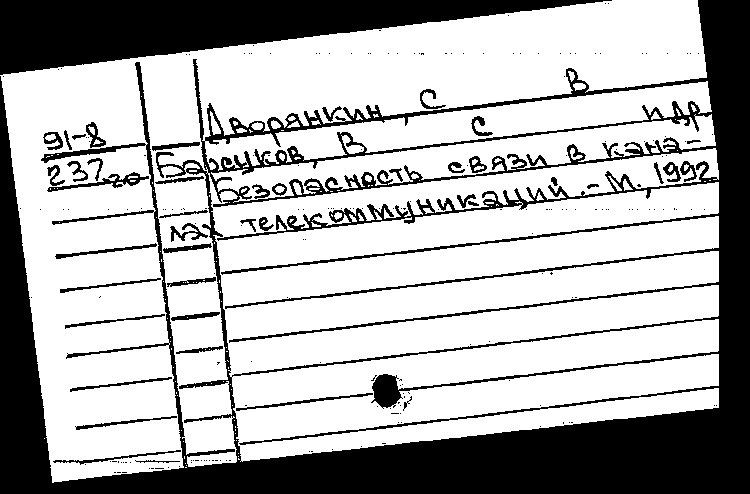 Дворянкин, С В
91-8
Барсуков, В С и др.
237
Безопасность связи в кана-
лах телекоммуникаций. - М., 1992